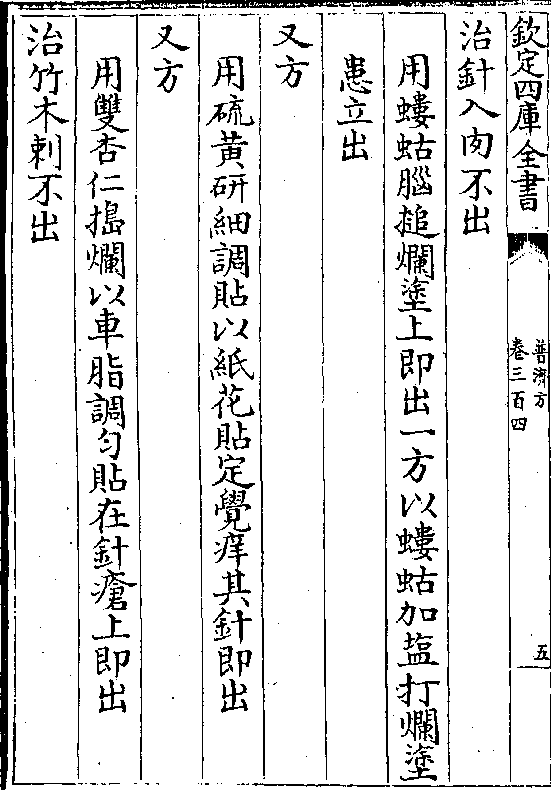 欽定四庫全書
普濟方
卷三百四
五
治針入肉不出
用螻蛄腦搥爛塗上即出一方以螻蛄加塩打爛塗
患立出
又方
用硫黄研細調貼以紙花貼定覺痒其針即出
又方
用雙杏仁搗爛以車脂調匀貼在針瘡上即出
治竹木刺不出